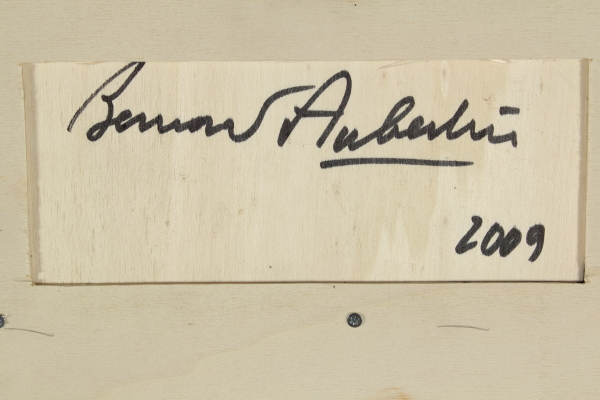 Bernard Aubertin
2009